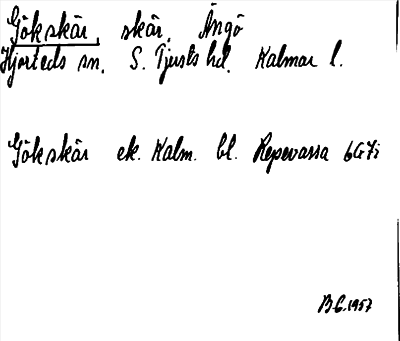 Gökskär, skär, Ängö
Hjorteds sn. S. Tjusts hd. Kalmar l.
Gökskär ek. Kalm. bl. Repevarra 6G7i
B.G. 1957